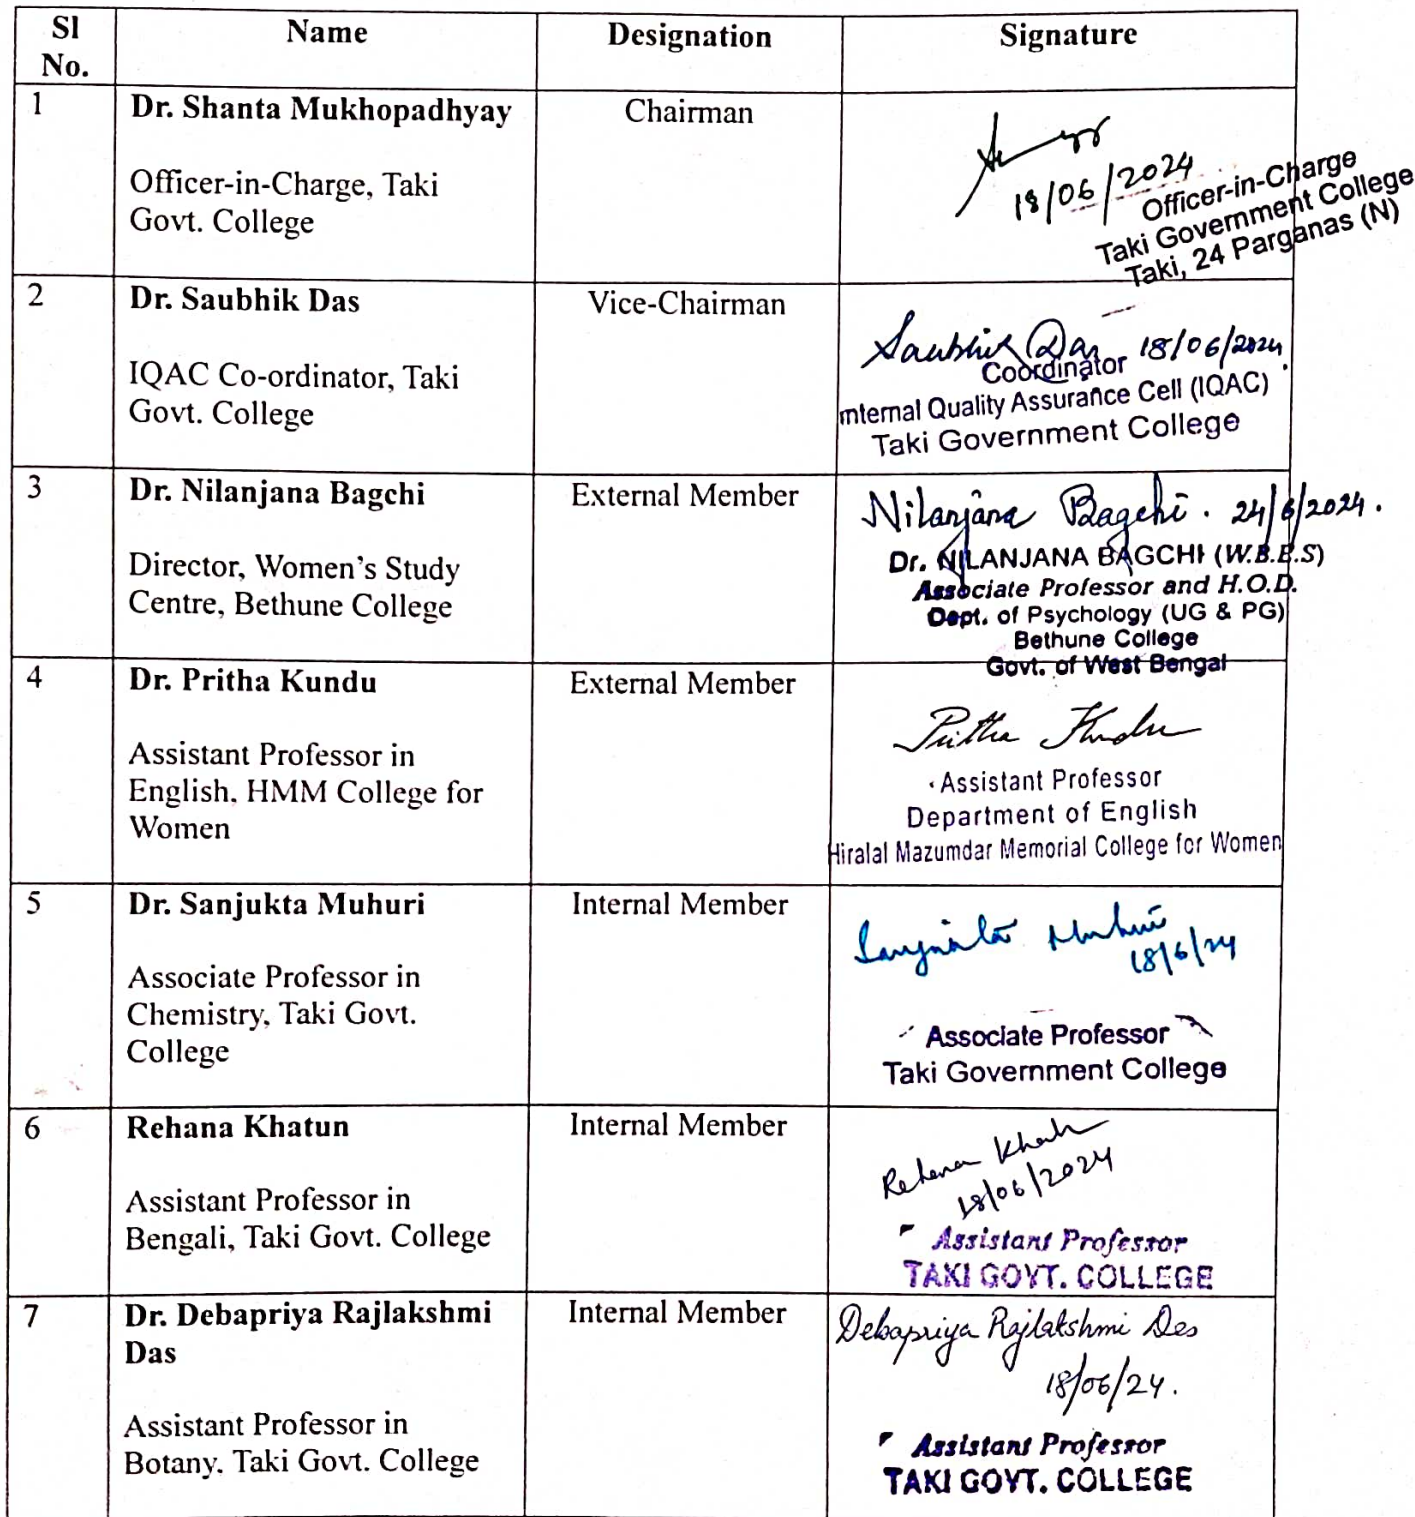 Sl No.
Name
Designation
Signature
1
Dr. Shanta Mukhopadhyay
Officer-in-Charge, Taki
Govt. College
Chairman
18/06/2024
Officer-in-Charge
Taki Government College
Taki, 24 Parganas (N)
2
Dr. Saubhik Das
IQAC Co-ordinator, Taki
Govt. College
Vice-Chairman
Saubhik Das 18/06/2024
Coordinator
Internal Quality Assurance Cell (IQAC)
Taki Government College
3
Dr. Nilanjana Bagchi
Director, Women's Study
Centre, Bethune College
External Member
Nilanjana Bagchi. 24/6/2024.
Dr. NILANJANA BAGCHI (W.B.E.S)
Associate Professor and H.O.D.
Dept. of Psychology (UG & PG)
Bethune College
Govt. of West Bengal
4
Dr. Pritha Kundu
Assistant Professor in
English, HMM College for
Women
External Member
Pritha Kundu
Assistant Professor
Department of English
Hiralal Mazumdar Memorial College for Women
5
Dr. Sanjukta Muhuri
Associate Professor in
Chemistry, Taki Govt.
College
Internal Member
Sanjukta Muhuri
18/6/24
Associate Professor
Taki Government College
6
Rehana Khatun
Assistant Professor in
Bengali, Taki Govt. College
Internal Member
Rehana Khatun
18/06/2024
Assistant Professor
TAKI GOVT. COLLEGE
7
Dr. Debapriya Rajlakshmi
Das
Assistant Professor in
Botany. Taki Govt. College
Internal Member
Debapriya Rajlakshmi Das
18/06/24.
Assistant Professor
TAKI GOVT. COLLEGE